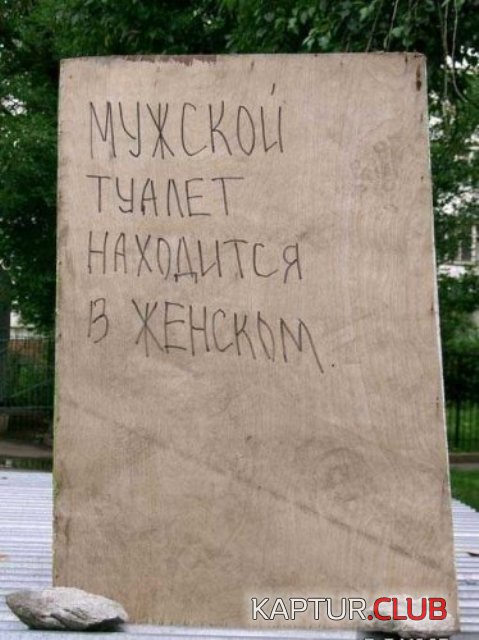 МУЖСКОЙ
ТУАЛЕТ
НАХОДИТСЯ
В ЖЕНСКОМ.
KAPTUR.CLUB